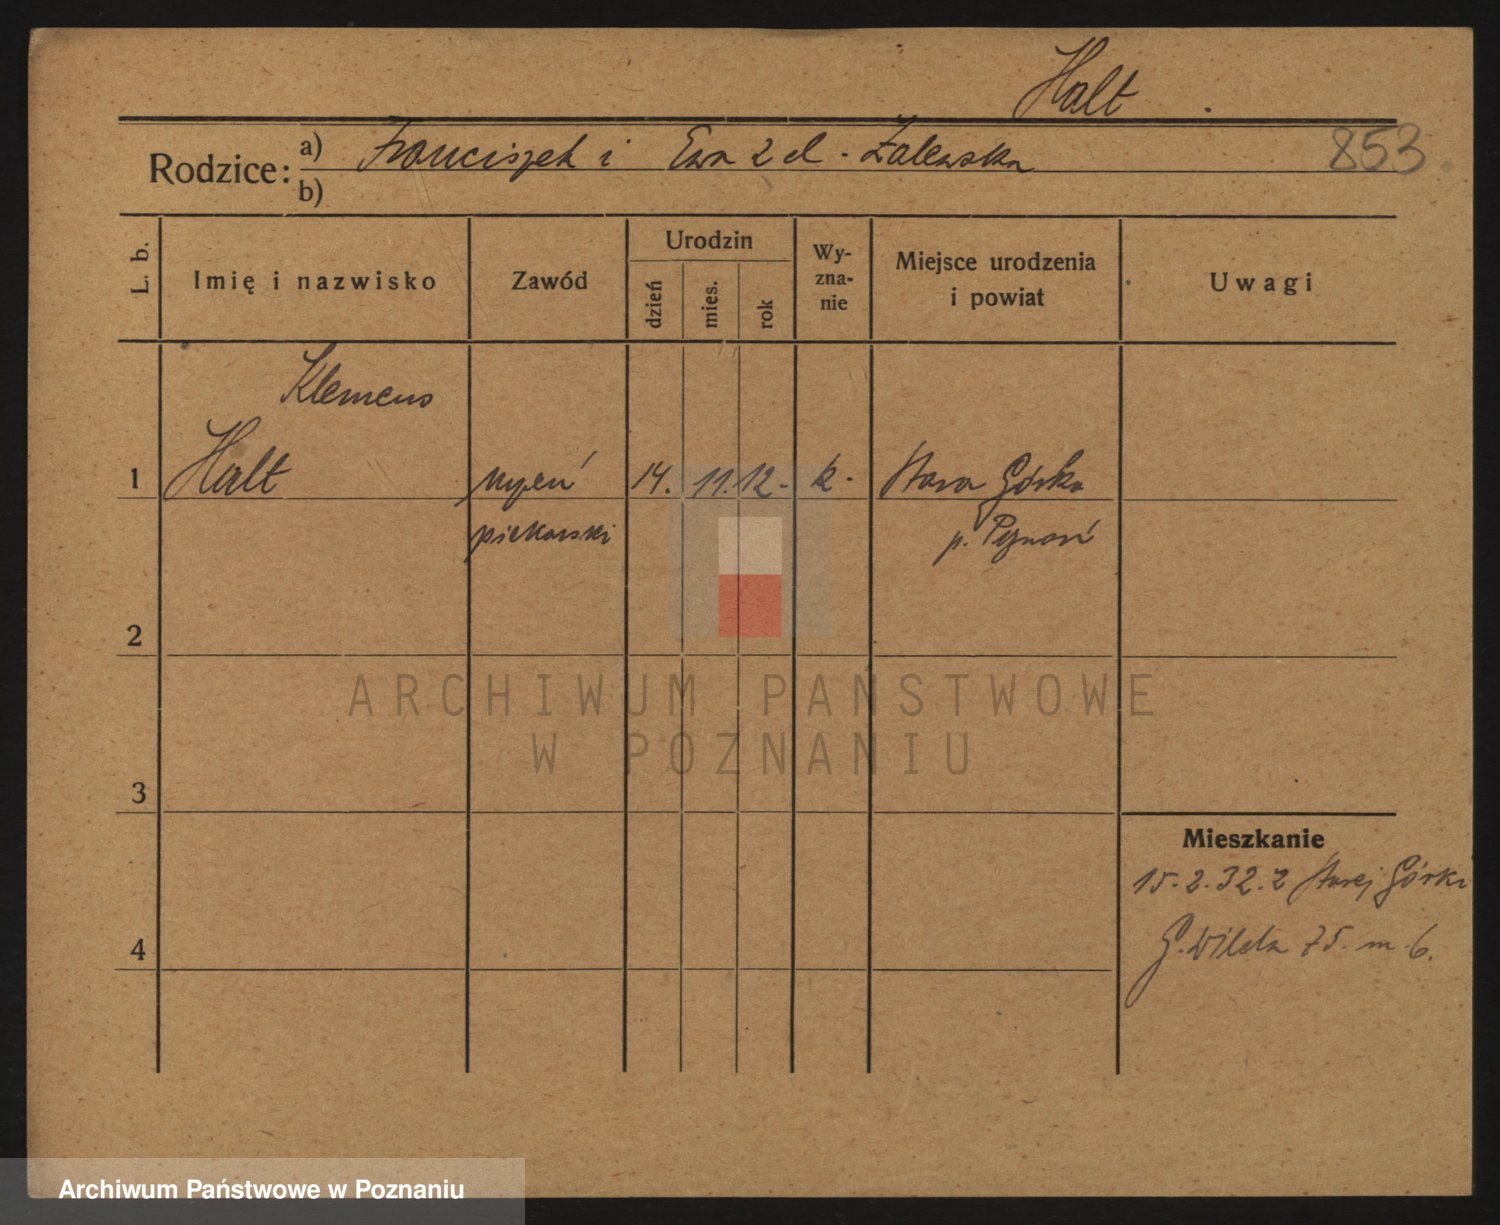 Halt
Rodzice: a) Franciszek i Ewa z d. Zalewska 853
b)
L. b. Imię i nazwisko Zawód Urodzin dzień mies. rok Wy-zna-nie Miejsce urodzenia i powiat Uwagi
Klemens
1 Halt uczeń 14. 11. 12. k. Stara Górka
piekarski p. Poznań
2
ARCHIWUM PAŃSTWOWE
W POZNANIU
3
Mieszkanie
15.2.32. z Starej Górki
4 G. Wilda 75. m. 6.
Archiwum Państwowe w Poznaniu